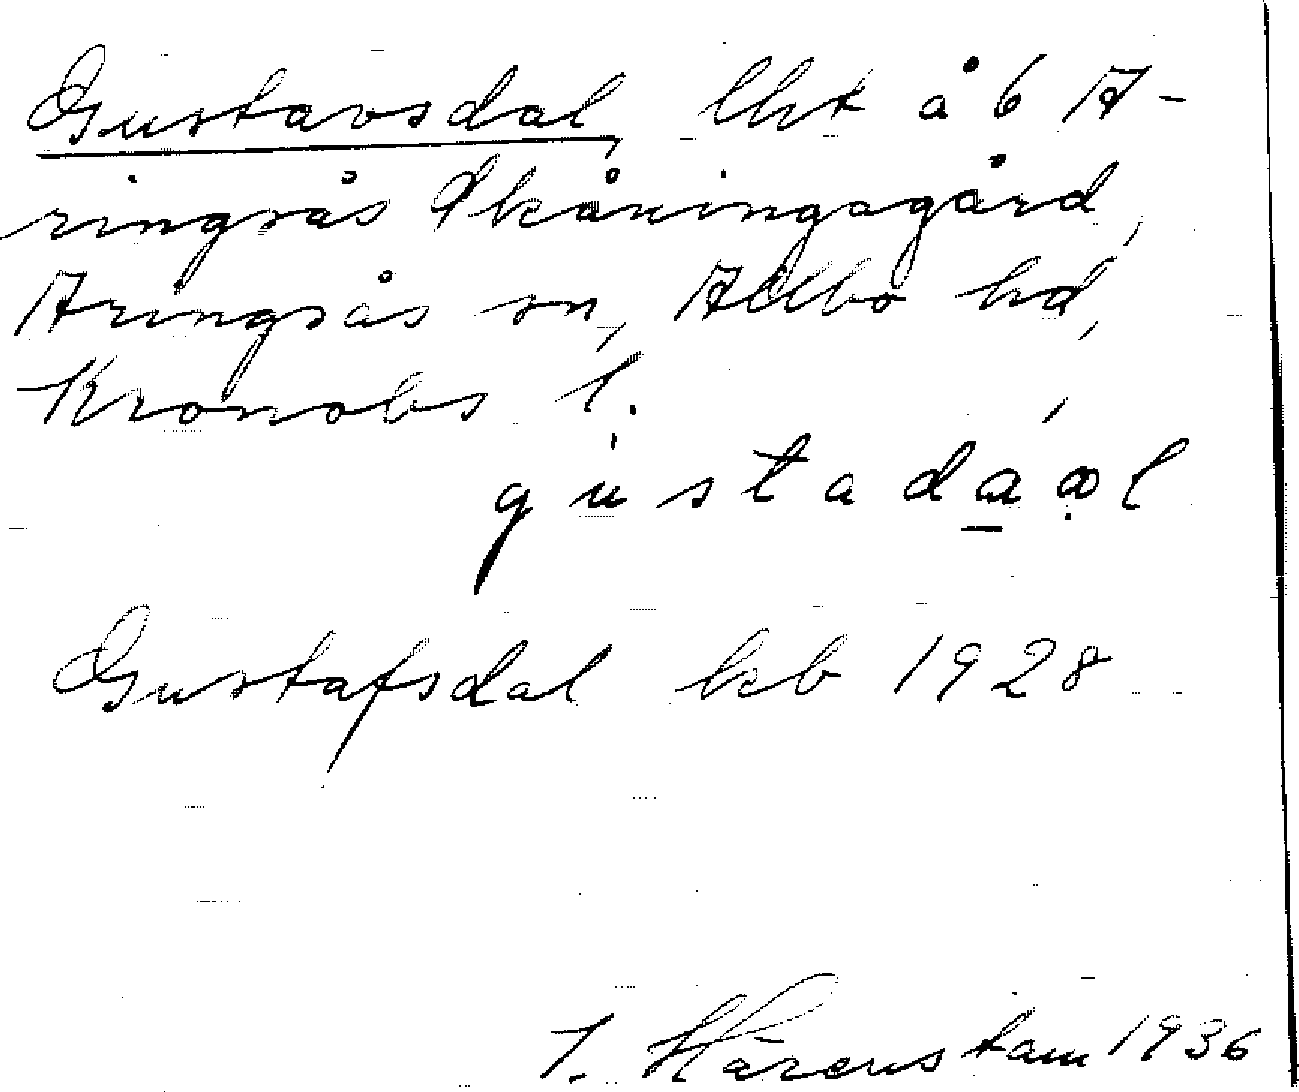 Gustavsdal, lht å 6 A-
ringsås Skåningagård,
Aringsås sn, Allbo hd,
Kronobs l.
gustadaal
Gustafsdal kb 1928
J. Härenstam 1936